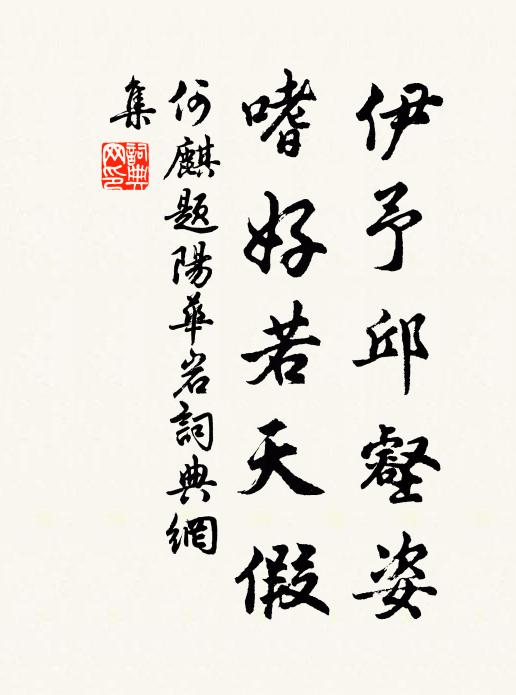 伊予邱壑姿
嗜好若天假
何麒题陽華岩詞典網
集
詞典
网印